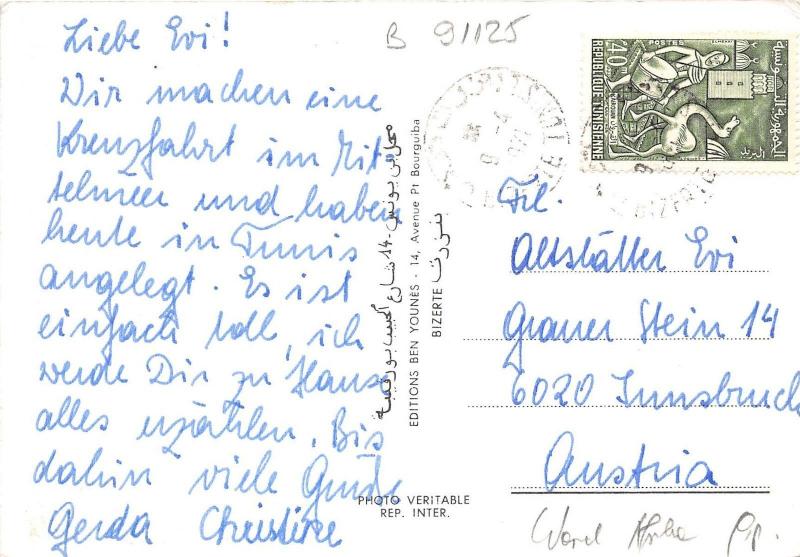 Liebe Evi!
Wir machen eine
Kreuzfahrt im Mit
telmeer und haben
heute in Tunis
angelegt. Es ist
einfach toll, ich
werde Dir zu Hause
alles erzählen. Bis
dahin viele Grüße
Gerda Christine
B 91125
معمل بن يونس - 14 شارع الحبيب بورقيبة
EDITIONS BEN YOUNÈS - 14, Avenue Pt Bourguiba
BIZERTE بنزرت
PHOTO VERITABLE
REP. INTER.
40
POSTES
REPUBLIQUE TUNISIENNE
الجمهورية التونسية
BIZERTE
Frl.
Altstätter Evi
Grauer Stein 14
6020 Innsbruck
Austria